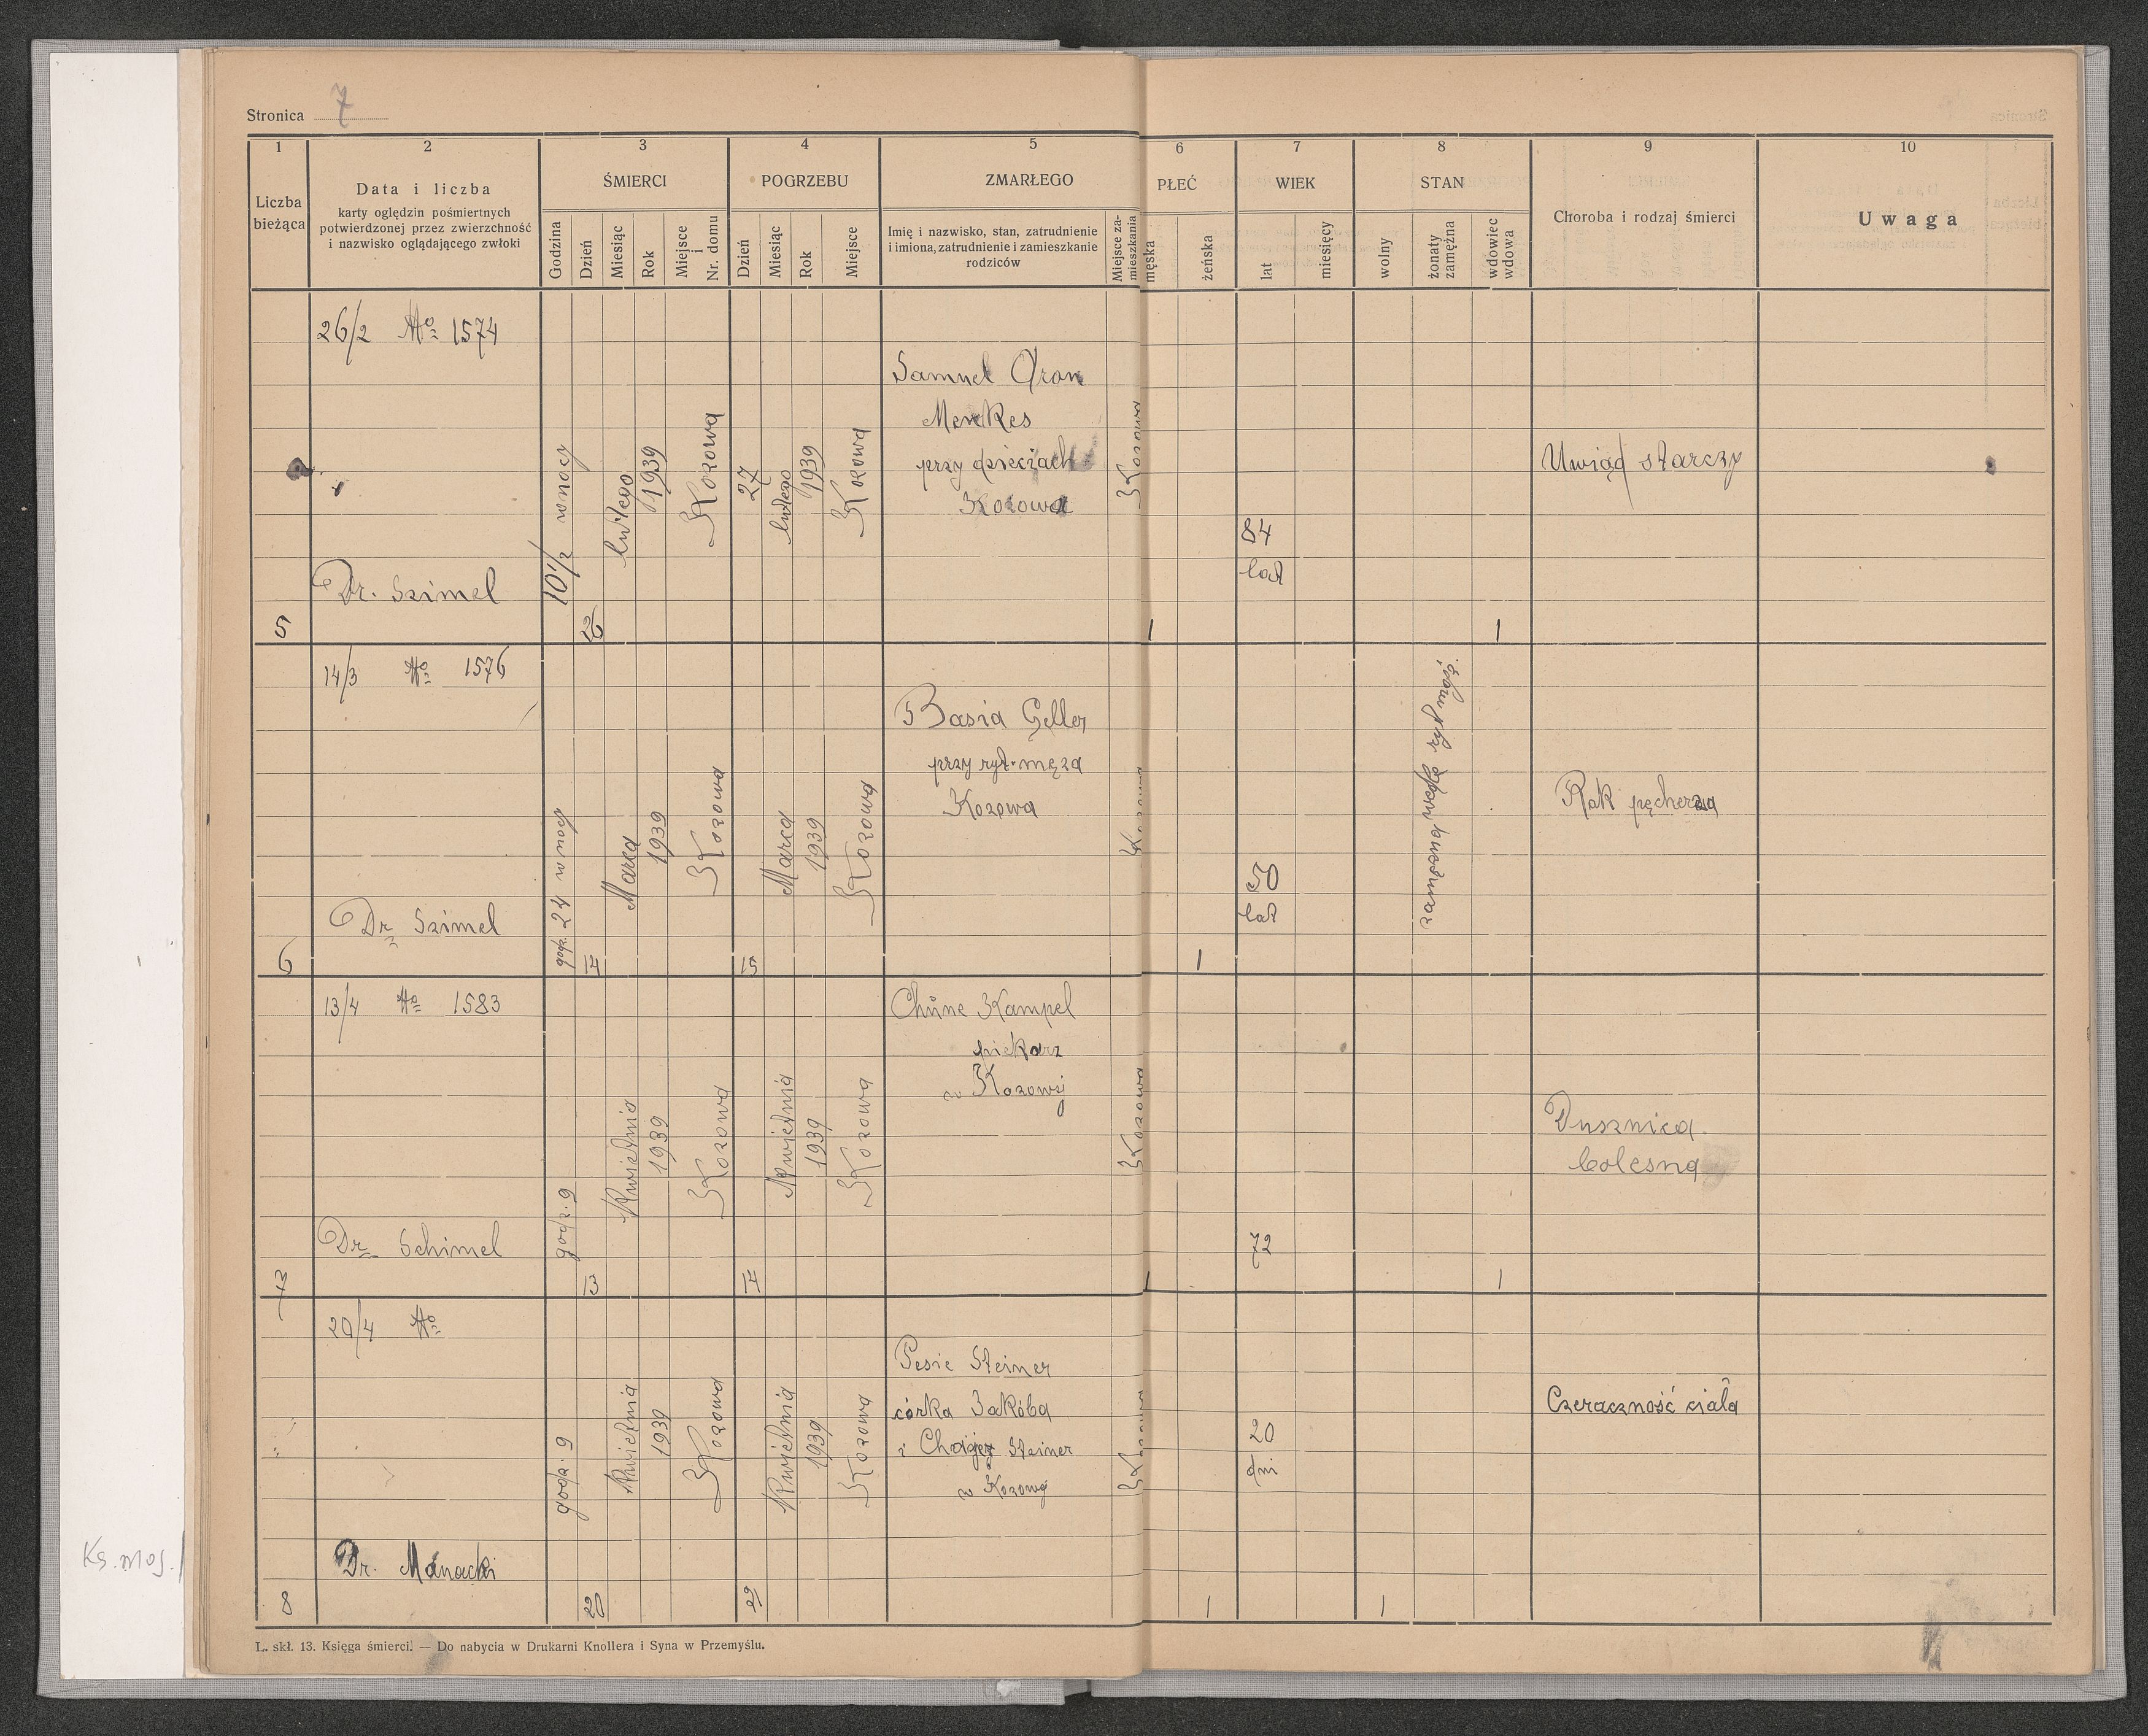 Stronica 7
1 2 3 4 5 6 7 8 9 10
Liczba bieżąca
Data i liczba
karty oględzin pośmiertnych
potwierdzonej przez zwierzchność
i nazwisko oglądającego zwłoki
ŚMIERCI
Godzina
Dzień
Miesiąc
Rok
Miejsce i Nr. domu
POGRZEBU
Dzień
Miesiąc
Rok
Miejsce
ZMARŁEGO
Imię i nazwisko, stan, zatrudnienie
i imiona, zatrudnienie i zamieszkanie
rodziców
Miejsce za-
mieszkania
PŁEĆ
męska
żeńska
WIEK
lat
miesięcy
STAN
wolny
żonaty
zamężna
wdowiec
wdowa
Choroba i rodzaj śmierci
Uwaga
26/2 No 1574
Dr. Szimel
5
10½ w nocy
26
lutego
1939
Kozowa
27
lutego
1939
Kozowa
Samuel Aron
Menkes
przy dzieciach
Kozowa
Kozowa
1
84
lat
1
Uwiąd starczy
14/3 No 1576
Dr. Szimel
6
godz. 24 w nocy
14
Marca
1939
Kozowa
15
Marca
1939
Kozowa
Basia Geller
przy ryt. męza
Kozowa
Kozowa
1
50
lat
Rak pęcherza
13/4 No 1583
Dr. Schimel
7
godz. 9
13
Kwietnia
1939
Kozowa
14
Kwietnia
1939
Kozowa
Chune Kampel
piekarz
w Kozowej
Kozowa
1
72
1
Dusznica
bolesna
20/4 No
Dr. Manacki
8
godz. 9
20
Kwietnia
1939
Kozowa
Kwietnia
1939
Kozowa
Pesie Steiner
córka Jakóba
i Chajej Steiner
w Kozowej
Kozowa
1
20
dni
1
Czeraczność ciała
L. skł. 13. Księga śmierci. — Do nabycia w Drukarni Knollera i Syna w Przemyślu.